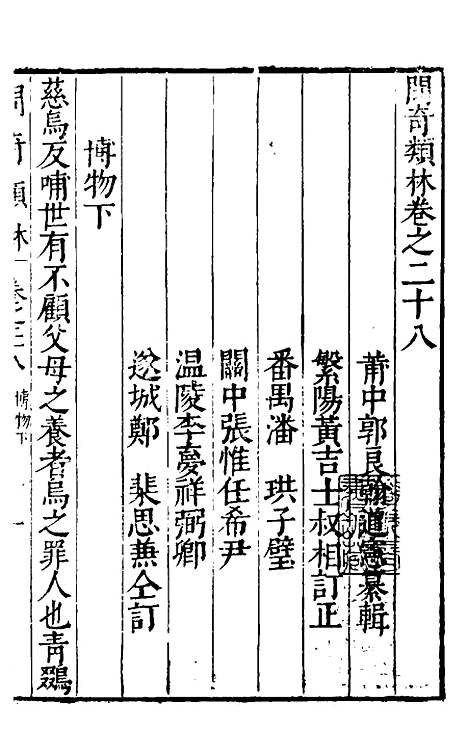 問奇類林卷之二十八
莆中郭良翰道憲纂輯
繁陽黃吉士叔相訂正
番禺潘珙子璧
關中張惟任希尹
温陵李夢祥弼卿
遂城鄭棐思兼仝訂
博物下
慈烏反哺世有不顧父母之養者烏之罪人也青鷄
問奇類林 卷之二八 博物下 一